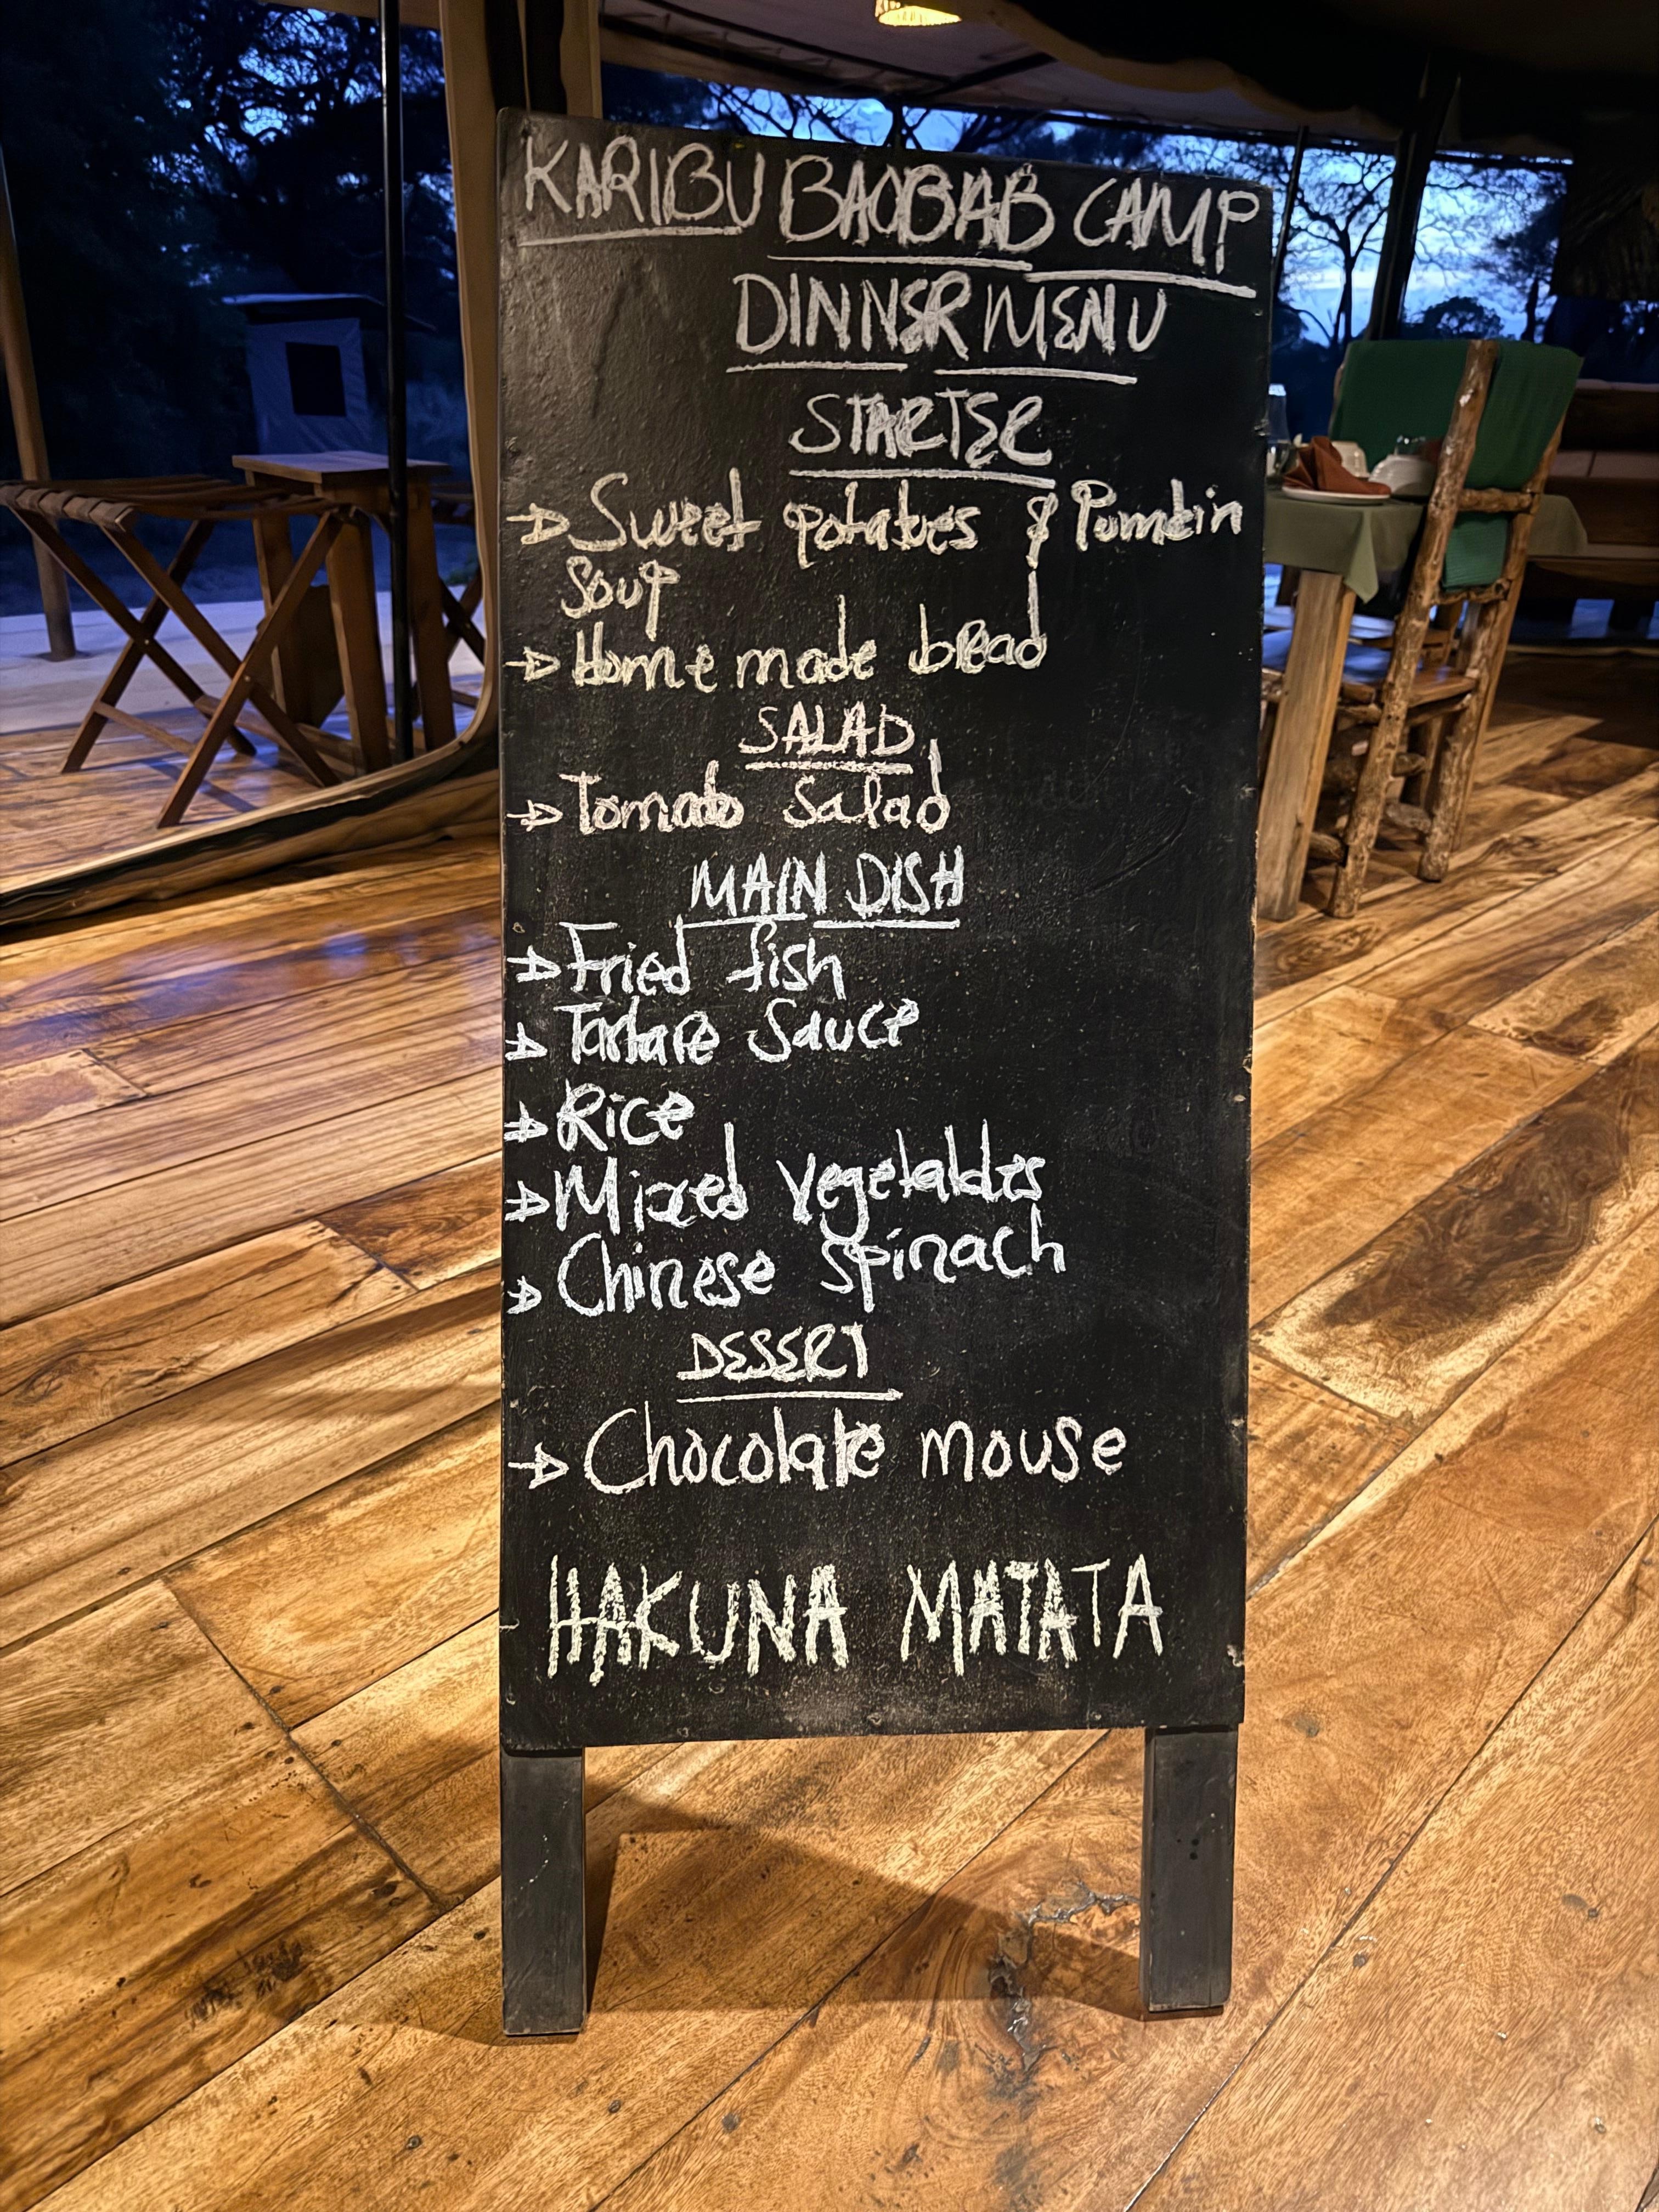 KARIBU BAOBAB CAMP
DINNER MENU
STARTER
Sweet potatoes & Pumkin
Soup
Home made bread
SALAD
Tomato Salad
MAIN DISH
Fried fish
Tartare Sauce
Rice
Mixed vegetables
Chinese spinach
DESSERT
Chocolate mouse
HAKUNA MATATA